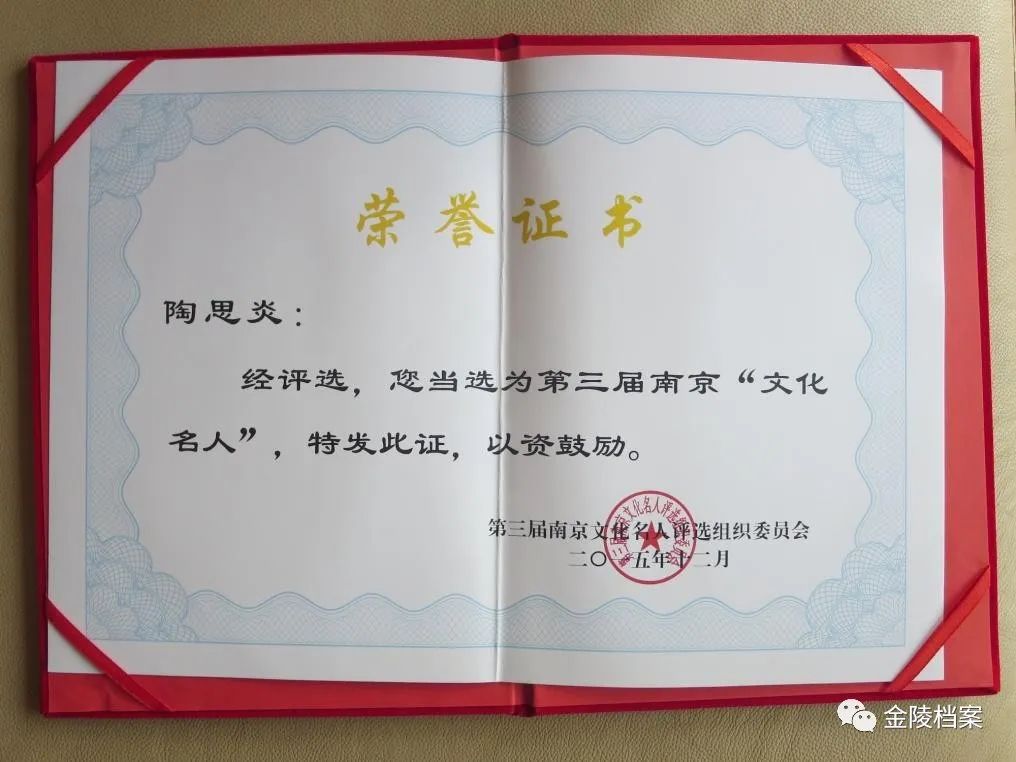 荣誉证书
陶思炎：
经评选，您当选为第三届南京“文化
名人”，特发此证，以资鼓励。
第三届南京文化名人评选组织委员会
二〇一五年十二月
金陵档案